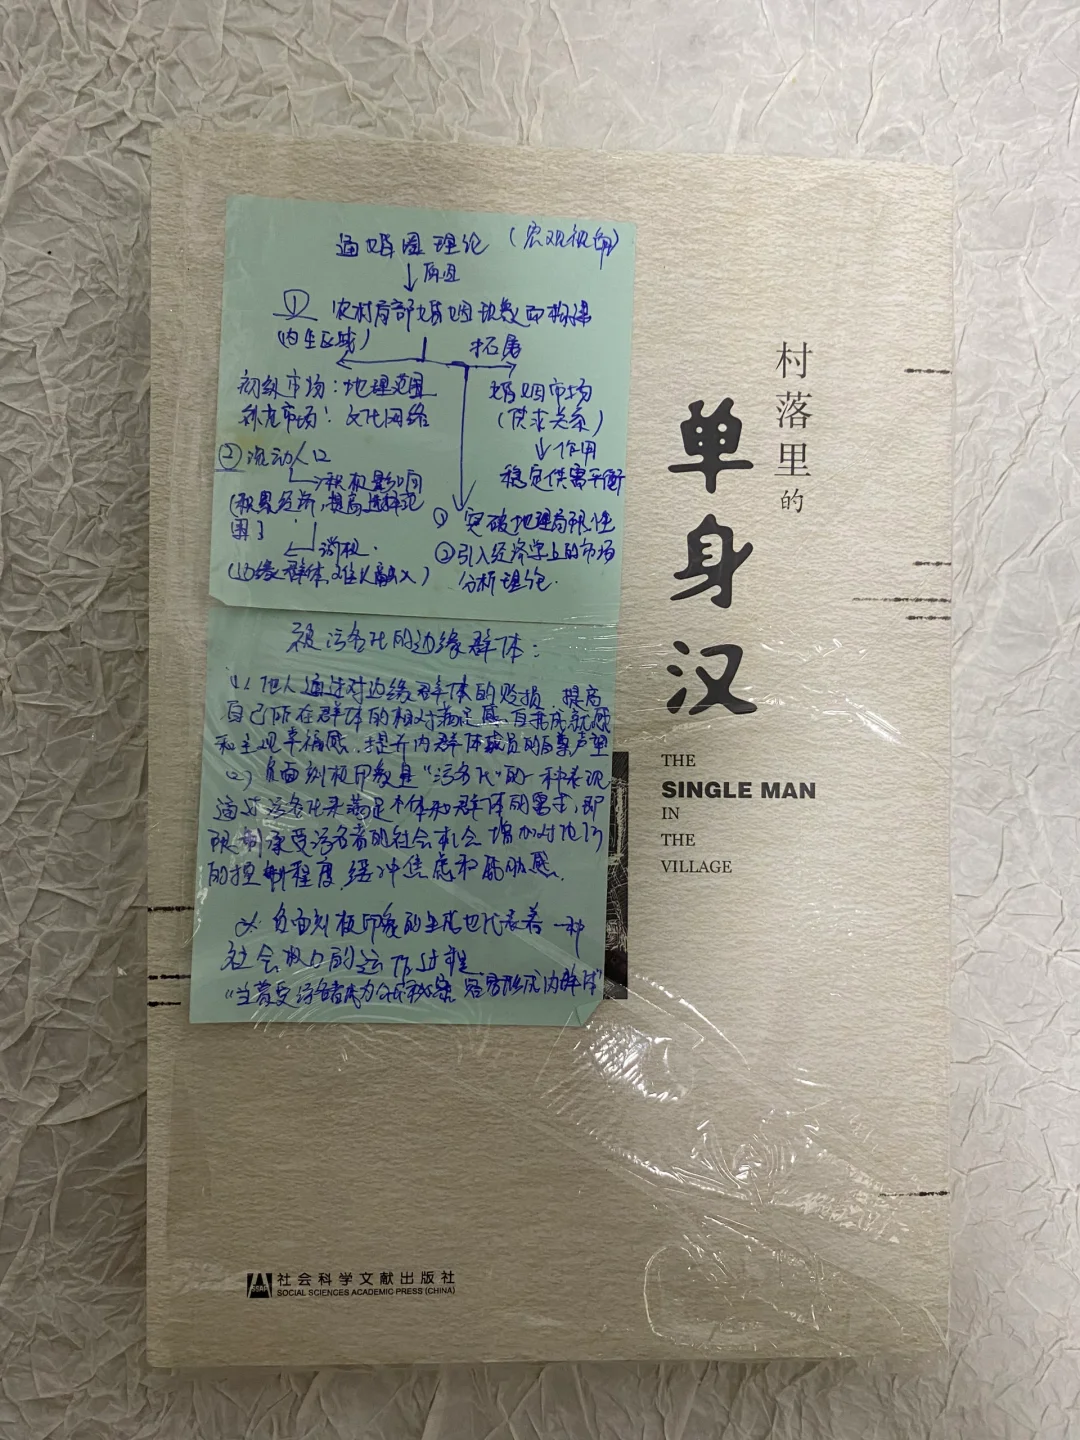 通婚圈理论 (宏观视角)
↓原因
① 农村局部婚姻
(内生区域)
拓展
初级市场:地理范围
补充市场:文化网络
② 流动人口
积极影响
(积累经济,提高选择范
围)
消极.
(边缘群体,难以融入)
婚姻市场
(供求关系)
↓作用
稳定供需平衡
① 突破地理局限性
②引入经济学上的市场
分析理论.
被污名化的边缘群体:
(1) 他人通过对边缘群体的贬损,提高
自己所在群体的相对满足感,自我成就感
和主观幸福感,提升内群体成员的自尊声望
(2) 负面刻板印象是“污名化”的一种表现
通过污名化来满足个体和群体的需求,即
限制承受污名者的社会机会 增加对他们
的控制程度 缓冲焦虑和威胁感.
负面刻板印象的生成也代表着一种
社会权力的运作过程
村落里的
单身汉
THE
SINGLE MAN
IN
THE
VILLAGE
SSAP
社会科学文献出版社
SOCIAL SCIENCES ACADEMIC PRESS (CHINA)